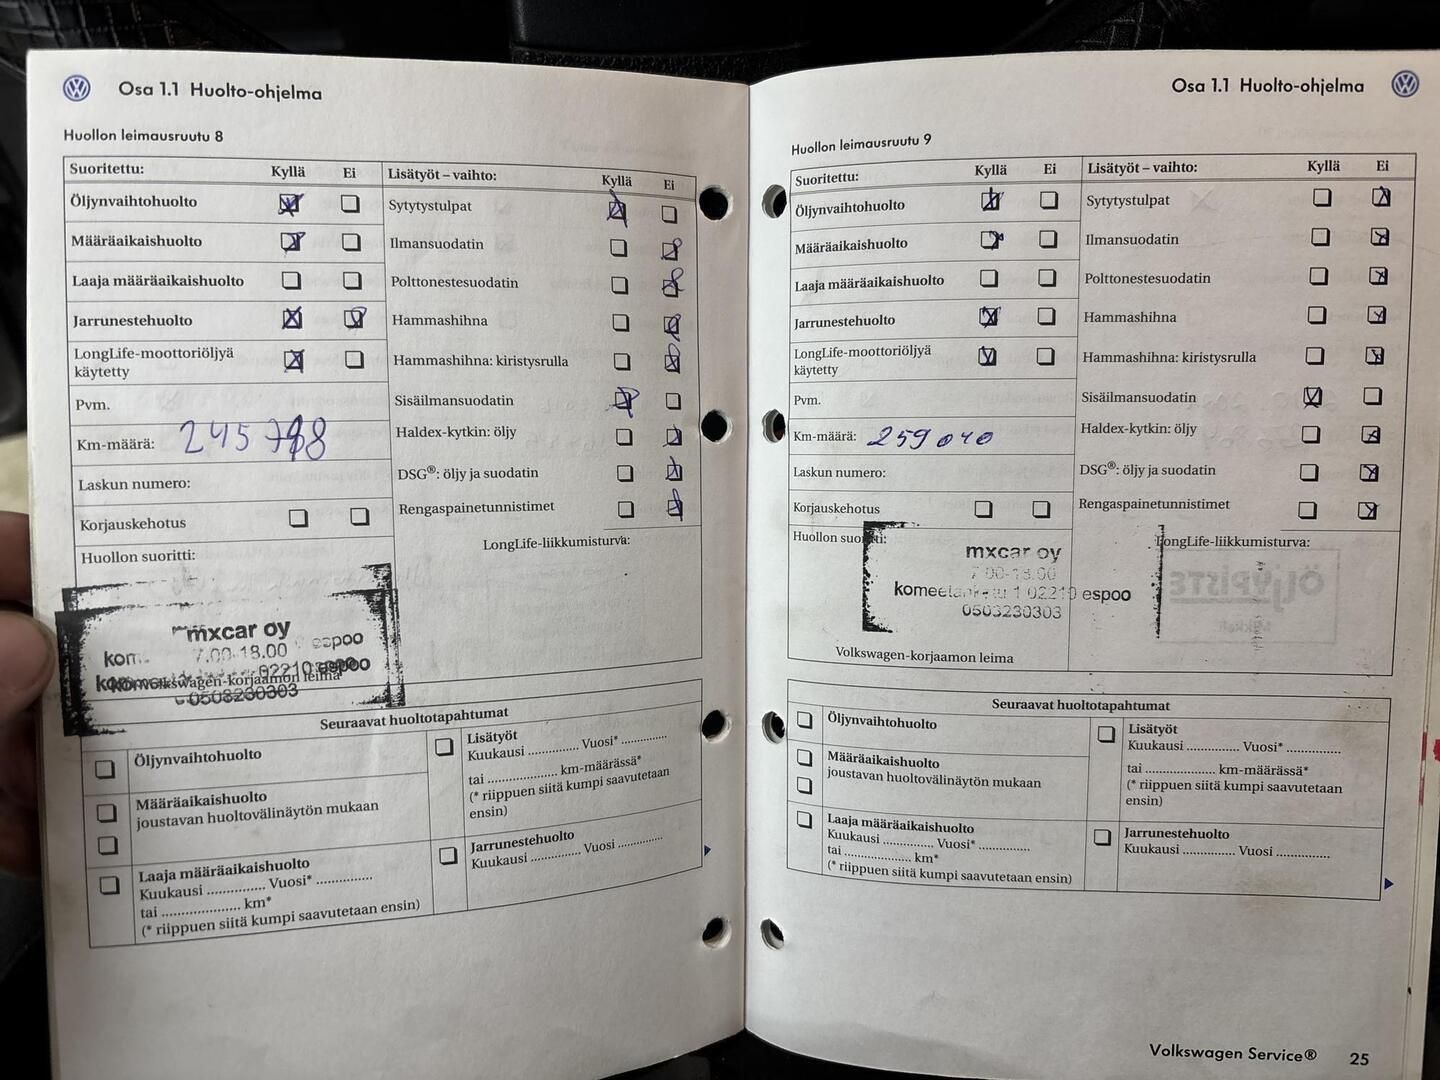 Osa 1.1 Huolto-ohjelma
Huollon leimausruutu 8
Suoritettu: Kyllä Ei
Öljynvaihtohuolto
Määräaikaishuolto
Laaja määräaikaishuolto
Jarrunestehuolto
LongLife-moottoriöljyä
käytetty
Pvm.
Km-määrä: 245 798
Laskun numero:
Korjauskehotus
Huollon suoritti:
mxcar oy
7.00-18.00
02210 espoo
0503230303
Volkswagen-korjaamon leima
Lisätyöt – vaihto: Kyllä Ei
Sytytystulpat
Ilmansuodatin
Polttonestesuodatin
Hammashihna
Hammashihna: kiristysrulla
Sisäilmansuodatin
Haldex-kytkin: öljy
DSG®: öljy ja suodatin
Rengaspainetunnistimet
LongLife-liikkumisturva:
Seuraavat huoltotapahtumat
Öljynvaihtohuolto
Määräaikaishuolto
joustavan huoltovälinäytön mukaan
Laaja määräaikaishuolto
Kuukausi ............... Vuosi* ..............
tai .................... km*
(* riippuen siitä kumpi saavutetaan ensin)
Lisätyöt
Kuukausi ............. Vuosi* ............
tai .................. km-määrässä*
(* riippuen siitä kumpi saavutetaan
ensin)
Jarrunestehuolto
Kuukausi ............. Vuosi ............
Osa 1.1 Huolto-ohjelma
Huollon leimausruutu 9
Suoritettu: Kyllä Ei
Öljynvaihtohuolto
Määräaikaishuolto
Laaja määräaikaishuolto
Jarrunestehuolto
LongLife-moottoriöljyä
käytetty
Pvm.
Km-määrä: 259 040
Laskun numero:
Korjauskehotus
Huollon suoritti:
mxcar oy
7.00-18.00
1 02210 espoo
0503230303
Volkswagen-korjaamon leima
Lisätyöt – vaihto: Kyllä Ei
Sytytystulpat
Ilmansuodatin
Polttonestesuodatin
Hammashihna
Hammashihna: kiristysrulla
Sisäilmansuodatin
Haldex-kytkin: öljy
DSG®: öljy ja suodatin
Rengaspainetunnistimet
LongLife-liikkumisturva:
Seuraavat huoltotapahtumat
Öljynvaihtohuolto
Määräaikaishuolto
joustavan huoltovälinäytön mukaan
Laaja määräaikaishuolto
Kuukausi ............. Vuosi* .............
tai ................. km*
(* riippuen siitä kumpi saavutetaan ensin)
Lisätyöt
Kuukausi ............. Vuosi* ..............
tai .................. km-määrässä*
(* riippuen siitä kumpi saavutetaan
ensin)
Jarrunestehuolto
Kuukausi ............. Vuosi ..............
Volkswagen Service® 25